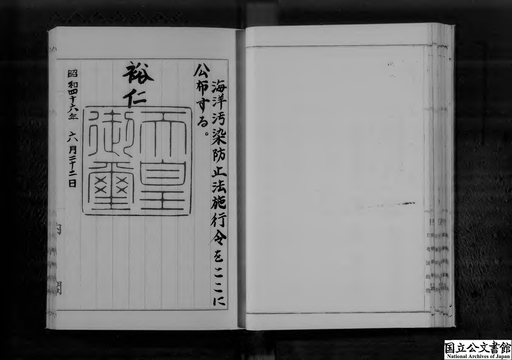 海洋汚染防止法施行令をここに
公布する。
裕仁
天皇
御璽
昭和四十六年 六月二十二日
国立公文書館
National Archives of Japan